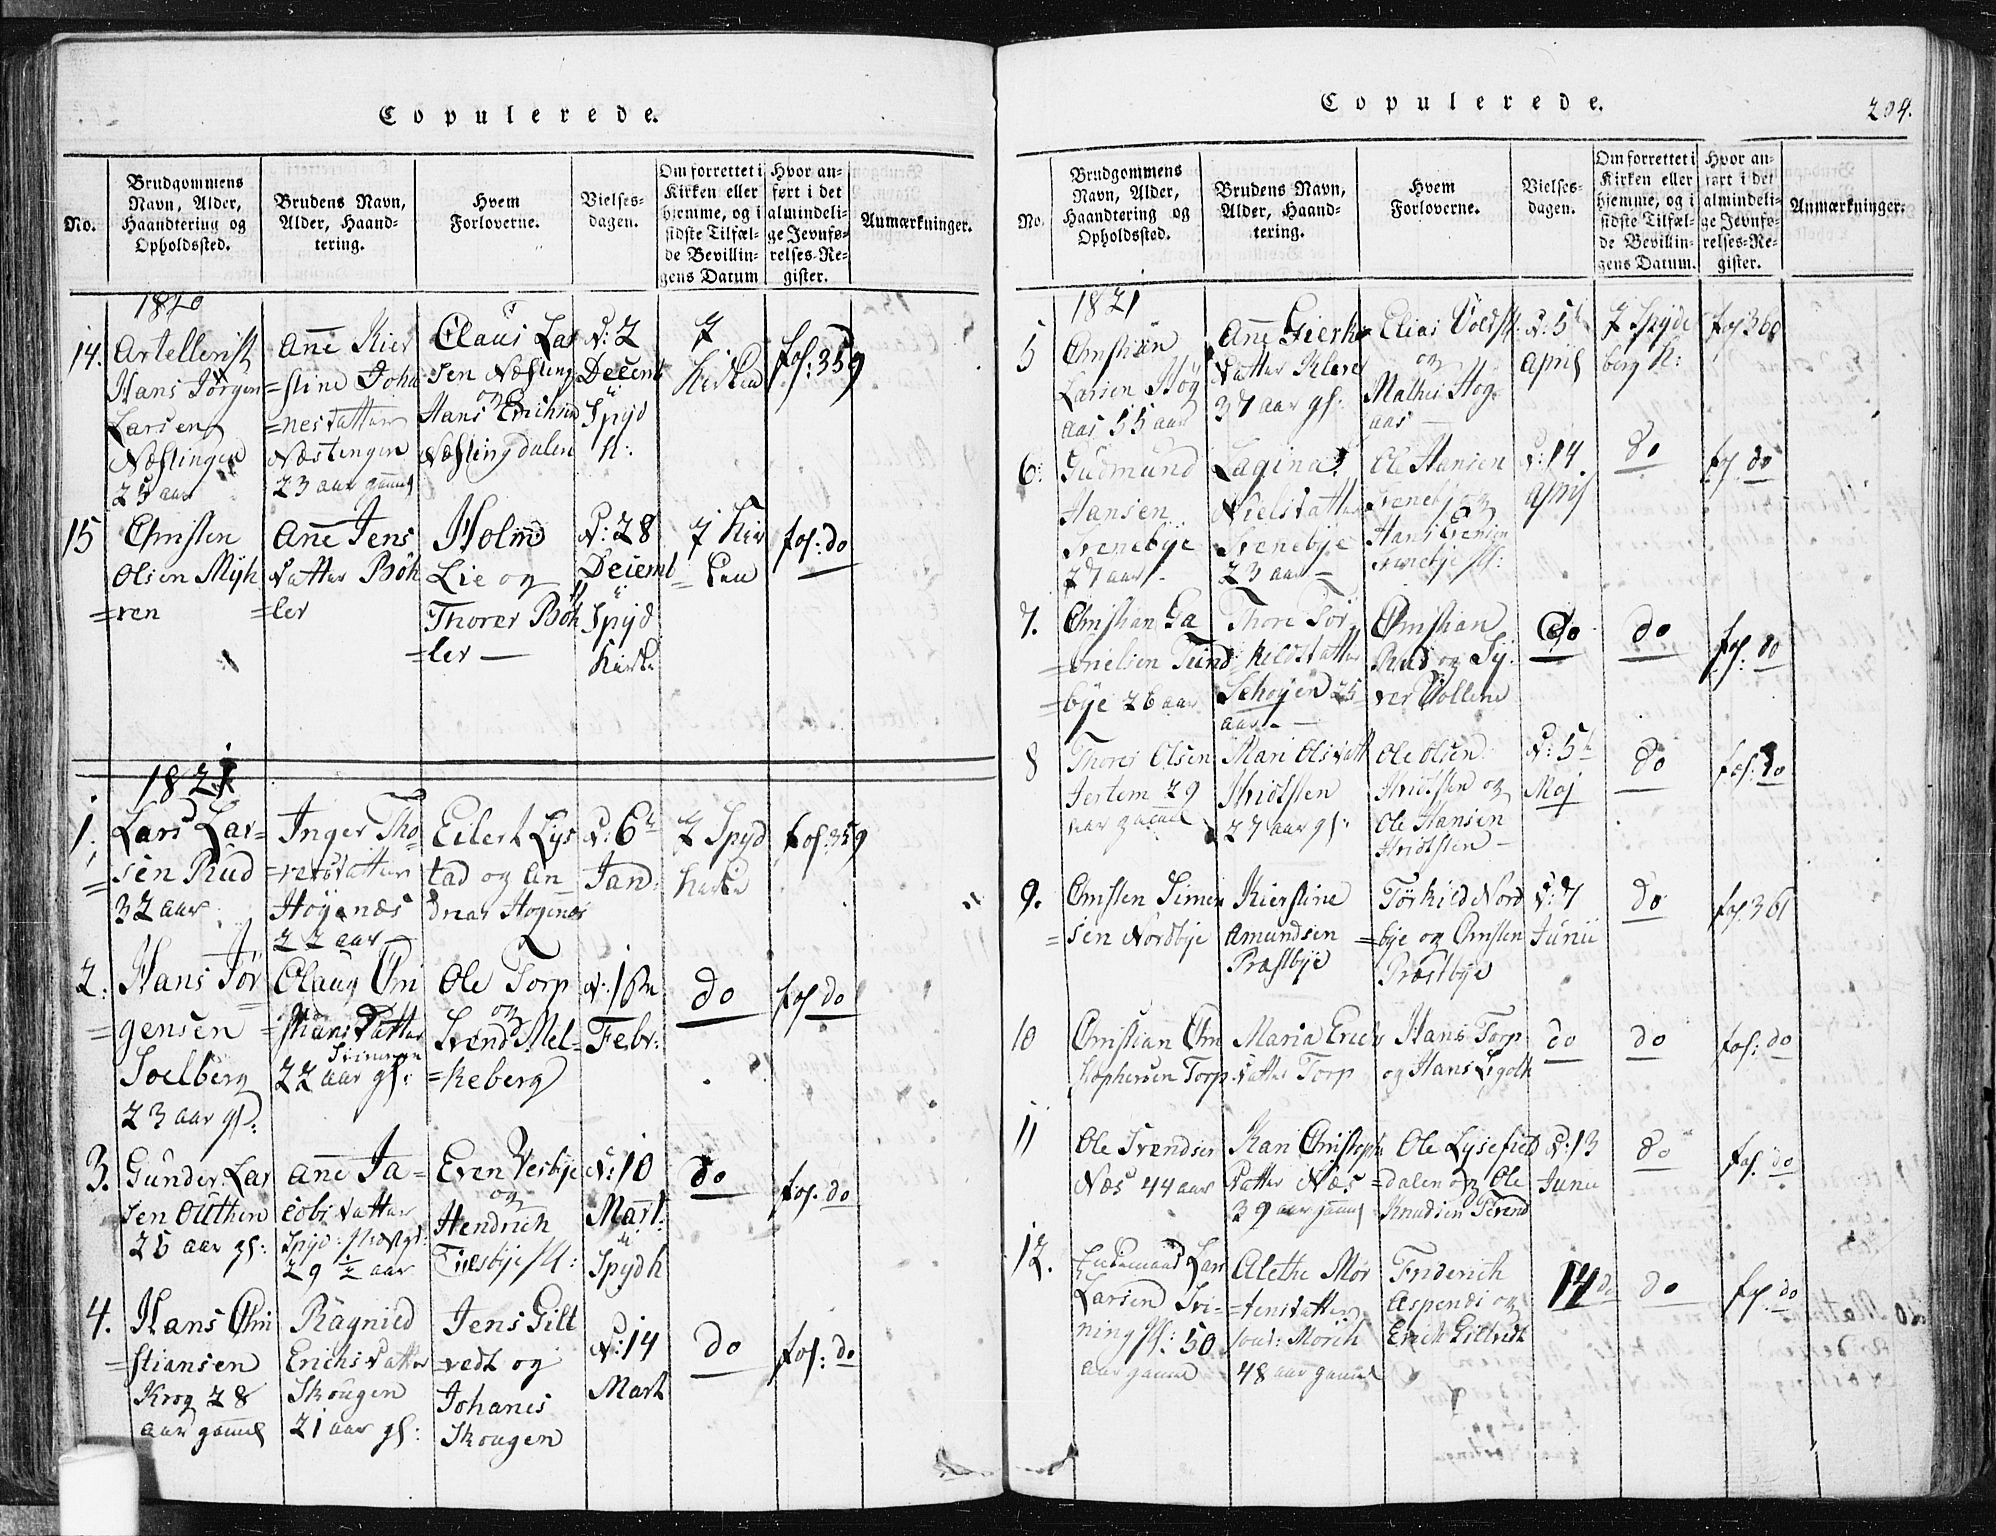 Copulerede.
No.
Brudgommens
Navn, Alder,
Haandtering og
Opholdssted.
Brudens Navn,
Alder, Haand-
tering.
Hvem
Forloverne.
Vielses-
dagen.
Om forrettet i
Kirken eller
hjemme, og i
sidste Tilfæl-
de Bevillin-
gens Datum
Hvor an-
ført i det
almindeli-
ge Jevnfø-
relses-Re-
gister.
Anmærkninger.
1820
14.
Artellerist
Hans Jörgen
Larsen
Næslingen
25 aar
Anne Kier
=stine Joha
=nesdatter
Næstengen
23 aar gamel
Claus Lar
sen Næsling
og
Hans Erichsen
Næslingdalen
d: 2
Decemb
i
Spyd
K:
I
Kirken
fol: 359
15
Christen
Olsen Myh
=ren
Anne Jens
datter Böh
=ler
Holm
Lie og
Thorer Böh
=ler —
d: 28
Decemb
i
Spyd
Kirke
I Kir
=ken
fol: do
1821
1.
Lars Lar=
=sen Rud
32 aar
Inger Tho
=resdatter
Högenæs
22 aar
Eilert Lys
tad og An
dreas Högenæs
d: 6te
Jan:
I Spyd
Kirke
fol: 359
2.
Hans Jör
=gensen
Soelberg
23 aar gl:
Olaug Chri
=stiansdatter
22 aar gl:
Ole Torp
og
Svend Mel=
=keberg
Febr:
do
fol do
3.
Gunder Lar
sen Outhen
25 aar gl:
Anne Ja=
cobsdatter
Spyd:
29 ½ aar
Even Vesbye
og
Hendrich
d: 10
Mart:
i
Spyd k
do
fol. do
4.
Hans Chri
=stiansen
Krog 28
aar gamel
Ragnild
Erichsdatter
Skougen
21 aar gl:
Jens Gilt
=vedt og
Johanes
Skougen
d: 14
Mart
do
fol: do
Copulerede.
204.
No.
Brudgommens
Navn, Alder,
Haandtering og
Opholdssted.
Brudens Navn,
Alder, Haand-
tering.
Hvem
Forloverne.
Vielses-
dagen.
Om forrettet i
Kirken eller
hjemme, og i
sidste Tilfæl-
de Bevillin-
gens Datum.
Hvor an-
ført i det
almindeli-
ge Jevnfø-
relses-Re-
gister.
Anmærkninger.
1821
5
Christian
Larsen Hög
aas 55 aar
Anne
datter Klever
37 aar gl:
Elias
og
Mathis Hög
aas —
d: 5te
April
I Spyde
berg K:
fol 360
6:
Gudmund
Hansen
Svenebye
27 aar
Lagina
Nielsdatter
Svenebye
23 aar —
Ole Hansen
Svenebye og
Hans
Svenebye
d: 14
April
do
fol do
7.
Christian Ga
=brielsen
=bye 26 aar
Thore Tor
kildsdatter
Schogen 25
aar —
Christian
Rud og Sy
ver Vollene
do
do
fol: do
8
Thorer Olsen
Jertem 29
aar gamel
Mari Olsdatt
Hvidsten
27 aar gl:
Ole Olsen
Hvidsten og
Ole Hansen
Hvidsten —
d: 5te
Maj
do
fol: do
9.
Christen Simen
=sen Nordbye
Kierstine
Amundsen
Præstbye
Törkild Nord
=bye og Christen
Præstbye
d: 7
Junii
do
fol. 361
10
Christian Chri
stophersen Torp
Maria Erichs
datter Torp
Hans Torp
og Hans Ligolt
do
do
fol: do
11
Ole Svendsen
Næs 44 aar
Kari Christoph
datter Næs
39 aar gamel
Ole Lysefied
=dalen og Ole
Knudsen
d: 13
Junii
do
fol: do
12.
Larsen Svi=
ning 50
aar gamel
Alethe Mor
=tensdatter
48 aar gamel
Friderich
Aspendi og
Erich Giltvedt
14 do
do
fol. do